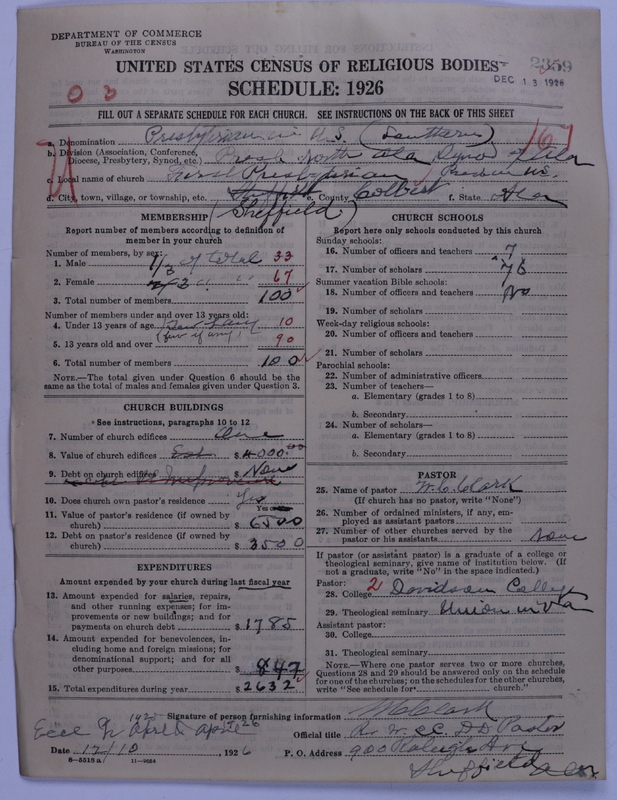 DEPARTMENT OF COMMERCE
BUREAU OF THE CENSUS
WASHINGTON
UNITED STATES CENSUS OF RELIGIOUS BODIES
2359
DEC 13 1926
SCHEDULE: 1926
0 3
FILL OUT A SEPARATE SCHEDULE FOR EACH CHURCH. SEE INSTRUCTIONS ON THE BACK OF THIS SHEET
167
a. Denomination Presbyterian in U.S. (Southern)
b. Division (Association, Conference, Diocese, Presbytery, Synod, etc.) Presb North Ala Synod of Ala
c. Local name of church First Presbyterian
d. City, town, village, or township, etc. Sheffield e. County Colbert f. State Ala
(Sheffield)
MEMBERSHIP
Report number of members according to definition of member in your church
Number of members, by sex:
1. Male 1/3 of total 33
2. Female 2/3 " " 67
3. Total number of members 100
Number of members under and over 13 years old:
4. Under 13 years of age 10
(few if any)
5. 13 years old and over 90
6. Total number of members 100
NOTE.—The total given under Question 6 should be the same as the total of males and females given under Question 3.
CHURCH BUILDINGS
See instructions, paragraphs 10 to 12
7. Number of church edifices One
8. Value of church edifices Est $ 4000.00
9. Debt on church edifices $ None
10. Does church own pastor's residence Yes
Yes or No
11. Value of pastor's residence (if owned by church) $ 6500
12. Debt on pastor's residence (if owned by church) $ 3500
EXPENDITURES
Amount expended by your church during last fiscal year
13. Amount expended for salaries, repairs, and other running expenses; for improvements or new buildings; and for payments on church debt $ 1785
14. Amount expended for benevolences, including home and foreign missions; for denominational support; and for all other purposes $ 847
15. Total expenditures during year $ 2632
CHURCH SCHOOLS
Report here only schools conducted by this church
Sunday schools:
16. Number of officers and teachers 7
17. Number of scholars 76
Summer vacation Bible schools:
18. Number of officers and teachers No
19. Number of scholars
Week-day religious schools:
20. Number of officers and teachers
21. Number of scholars
Parochial schools:
22. Number of administrative officers
23. Number of teachers—
a. Elementary (grades 1 to 8)
b. Secondary
24. Number of scholars—
a. Elementary (grades 1 to 8)
b. Secondary
PASTOR
25. Name of pastor W. C. Clark
(If church has no pastor, write "None")
26. Number of ordained ministers, if any, employed as assistant pastors
27. Number of other churches served by the pastor or his assistants None
If pastor (or assistant pastor) is a graduate of a college or theological seminary, give name of institution below. (If not a graduate, write "No" in the space indicated.)
Pastor:
28. College 2 Davidson College
29. Theological seminary Union in Va
Assistant pastor:
30. College
31. Theological seminary
NOTE.—Where one pastor serves two or more churches, Questions 28 and 29 should be answered only on the schedule for one of the churches; on the schedules for the other churches, write "See schedule for church."
Signature of person furnishing information W C Clark
Official title Pastor
Date 12/10, 1926 P. O. Address 900 Raleigh Ave
Sheffield Ala
8—5513 a 11—9024